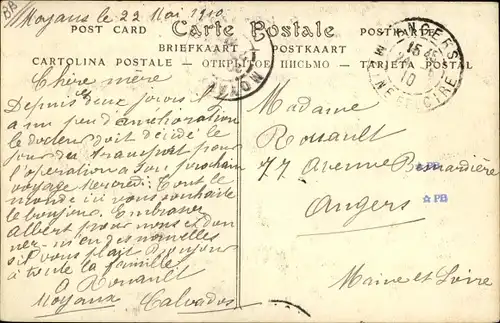 Moyaux le 22 Mai 1910
POST CARD Carte Postale POSTKARTE
BRIEFKAART POSTKAART
CARTOLINA POSTALE — ОТКРЫТОЕ ПИСЬМО — TARJETA POSTAL
ANGERS
MAINE ET LOIRE
15
10
MOYAUX
Chère mère
Depuis deux jours il y
a un peu d'amélioration
le docteur doit décidé le
jour du transport pour
l'opération a son prochain
voyage Mercredi. Tout le
monde ici vous souhaite
le bonjour. Embrasser
Albert pour nous et don
ner-nous des nouvelles
s'il vous plait Bonjour
à toute la famille
Rouault
Moyaux Calvados
Madame
Rouault
77 Avenue Besnardière
Angers
Maine et Loire
☆ PB
☆ PB